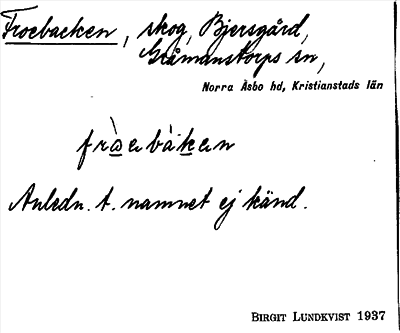 Froebacken, skog, Bjersgård,
Gråmanstorps sn,
Norra Åsbo hd, Kristianstads län
fràebàken
Anledn. t. namnet ej känd.
BIRGIT LUNDKVIST 1937